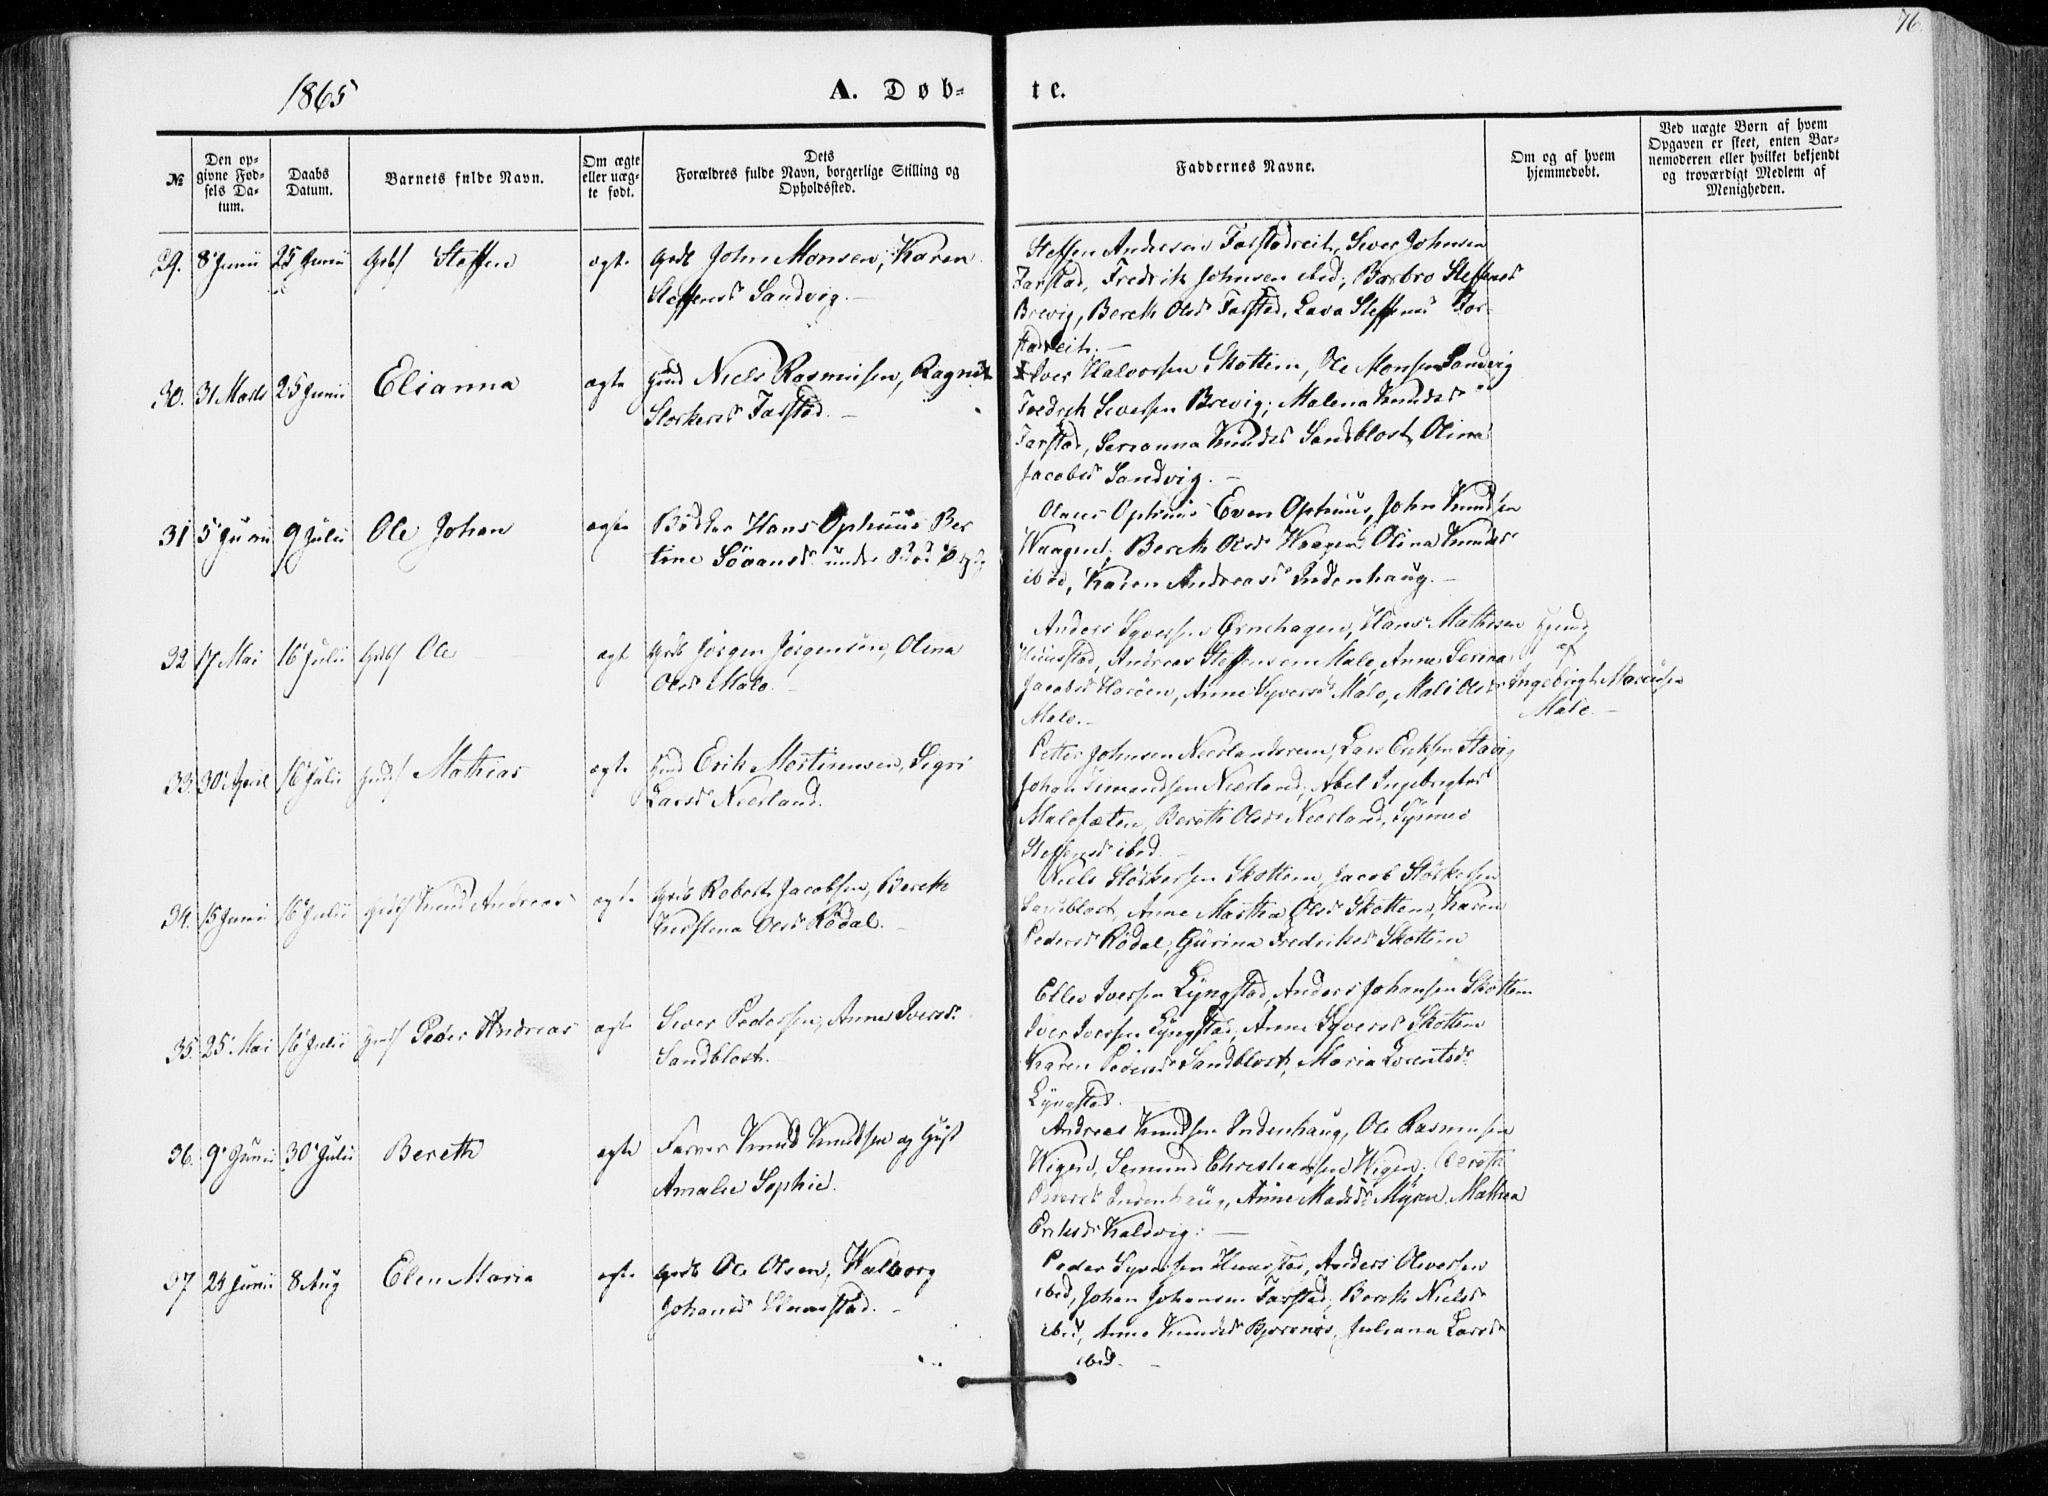 76.
1865
A. Døb-
te.
№
Den op-
givne Fød-
sels Da-
tum.
Daabs
Datum.
Barnets fulde Navn.
Om ægte
eller uæg-
te født.
Dets
Forældres fulde Navn, borgerlige Stilling og
Opholdssted.
Faddernes Navne.
Om og af hvem
hjemmedøbt.
Ved uægte Børn af hvem
Opgaven er skeet, enten Bar-
nemoderen eller hvilket bekjendt
og troværdigt Medlem af
Menigheden.
29. 8 Junii 25 Junii Steffen ægte John Monsen, Karen
Steffensd Sandvig. —
Steffen Andersen Farstadreit, Sever Johnsen
Farstad, Fredrik Johnsen ibid, Barbro Steffensd
Brevig, Bereth Olsd Farstad, Lava Steffensd Far-
stadreit. —
30. 31 Marts 25 Junii Elianna ægte Niels Rasmusen, Ragnil
Storkersd Farstad. —
Iver Halvorsen Skottem, Ole Monsen Sandvig
Fredrik Seversen Brevig, Malena Knudsd
Farstad, Serianna Knudsd Sandblost, Olina
Jacobsd Sandvig. —
31 5 Junii 9 Julii Ole Johan ægte Bødker Hans Ophuus Ber
tine Søvansd under
Olaus Ophuus Even Ophuus, John Knudsen
Waagen, Bereth Olsd Waagen Olina Knudsd
ibid, Karen Andreasd Indenhaug. —
32 17 Mai 16 Julii Ole ægt Jørgen Jørgensen, Olina
Olsd Malo. —
Anders Syversen Ørnehagen, Hans Mathisen
Huustad, Andreas Steffensen Male, Anne Serina
Jacobsd Harøen, Anne Syversd Malo, Mali Olsd
Male. —
Hjemd
af
Ingebrigt Marcusen
Male. —
33. 30 April 16 Julii Mathias ægte Erik Mortinusen, Sigri
Larsd Neerland.
Petter Johnsen Neerlandsrem, Lars Eriksen Stavig
Johan Simondsen Neerland, Abel Ingebrigtsd
Malosæten, Bereth Olsd Neerland, Synnev
Steffensd ibid. —
34. 15 Junii 16 Julii Knud Andreas ægte Robert Jacobsen, Bereth
Kirstina Olsd Rødal. —
Niels Størkersen Skottem, Jacob Størkersen
Sandblost, Anne Martha Olsd Skottem, Karen
Pedersd Rødal, Gurina Fredriksd Skottem
35. 25 Mai 16 Julii Peder Andreas ægte Sever Pedersen, Anne Iversd
Sandblost.
Ellev Iversen Lyngstad, Anders Johansen Skottem
Iver Iversen Lyngstad, Anne Syversd Skottem
Karen Pedersd Sandblost, Maria Lorentsd
Lyngstad. —
36. 9 Junii 30 Julii Bereth ægte Farver Knud Knudsen og Hust
Amalie Sophie.
Andreas Knudsen Indenhaug, Ole Rasmusen
Wigen, Semund Christiansen Wigen, Bereth
Indenhaug, Anne Madsd Myren, Mathea
Eriksd Kaldvig. —
37 24 Junii 8 Aug Elen Maria ægte Ole Olsen, Walborg
Johansd Huustad. —
Peder Syversen Huustad, Anders Olversen
ibid, Johan Johansen Farstad, Bereth Nielsd
ibid, Anne Knudsd Bjørnøs, Juliana Larsd
ibid. —